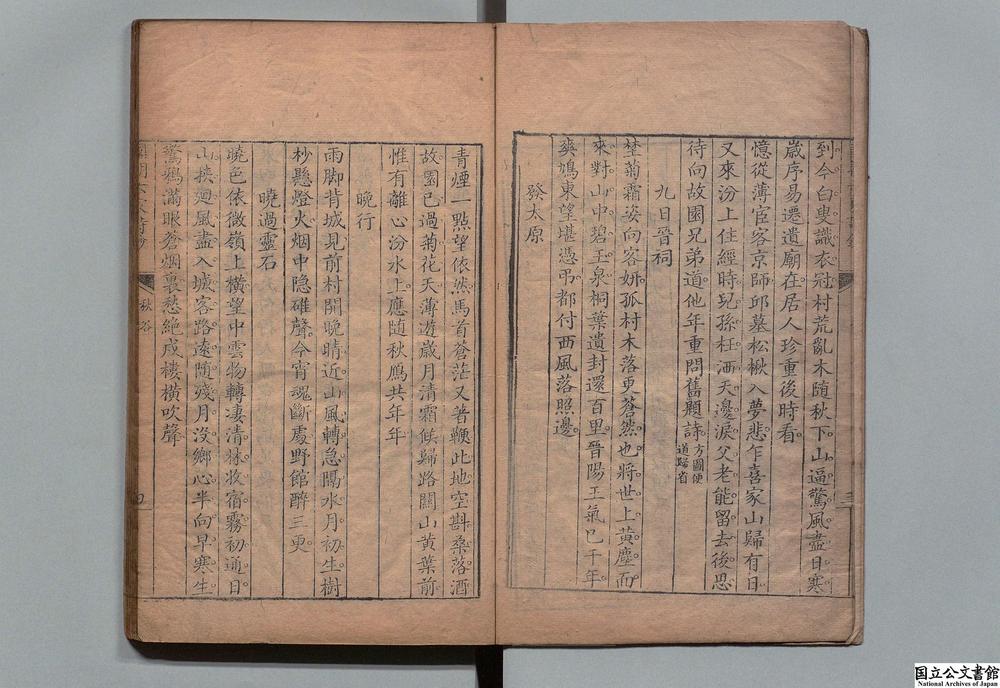 到今白叟識衣冠村荒亂木隨秋下山逼驚風盡日寒
歲序易遷遺廟在居人珍重後時看
憶從薄宦客京師邱墓松楸入夢悲乍喜家山歸有日
又來汾上住經時兒孫枉洒天邊淚父老能留去後思
待向故園兄弟道他年重問舊題詩方圖便道歸省
九日晉祠
埜菊霜姿向客妍孤村木落更蒼然也將世上黃塵而
來對山中碧玉泉桐葉遺封還百里晉陽王氣已千年
爽鳩東望堪憑弔都付西風落照邊
發太原
三
青煙一點望依然馬首蒼茫又著鞭此地空斟桑落酒
故園已過菊花天薄遊歲月清霜候歸路關山黃葉前
惟有離心汾水上應隨秋鴈共年年
晚行
雨脚背城見前村開晚晴近山風轉急隔水月初生樹
杪懸燈火烟中隐碓聲今宵魂斷處野館醉三更
曉過靈石
曉色依微嶺上橫望中雲物轉凄清林收宿霧初通日
山挾廻風盡入城客路遠隨殘月沒鄉心半向早寒生
驚鴉滿眼蒼烟裏愁絕戍樓橫吹聲
秋谷
四
国立公文書館
National Archives of Japan